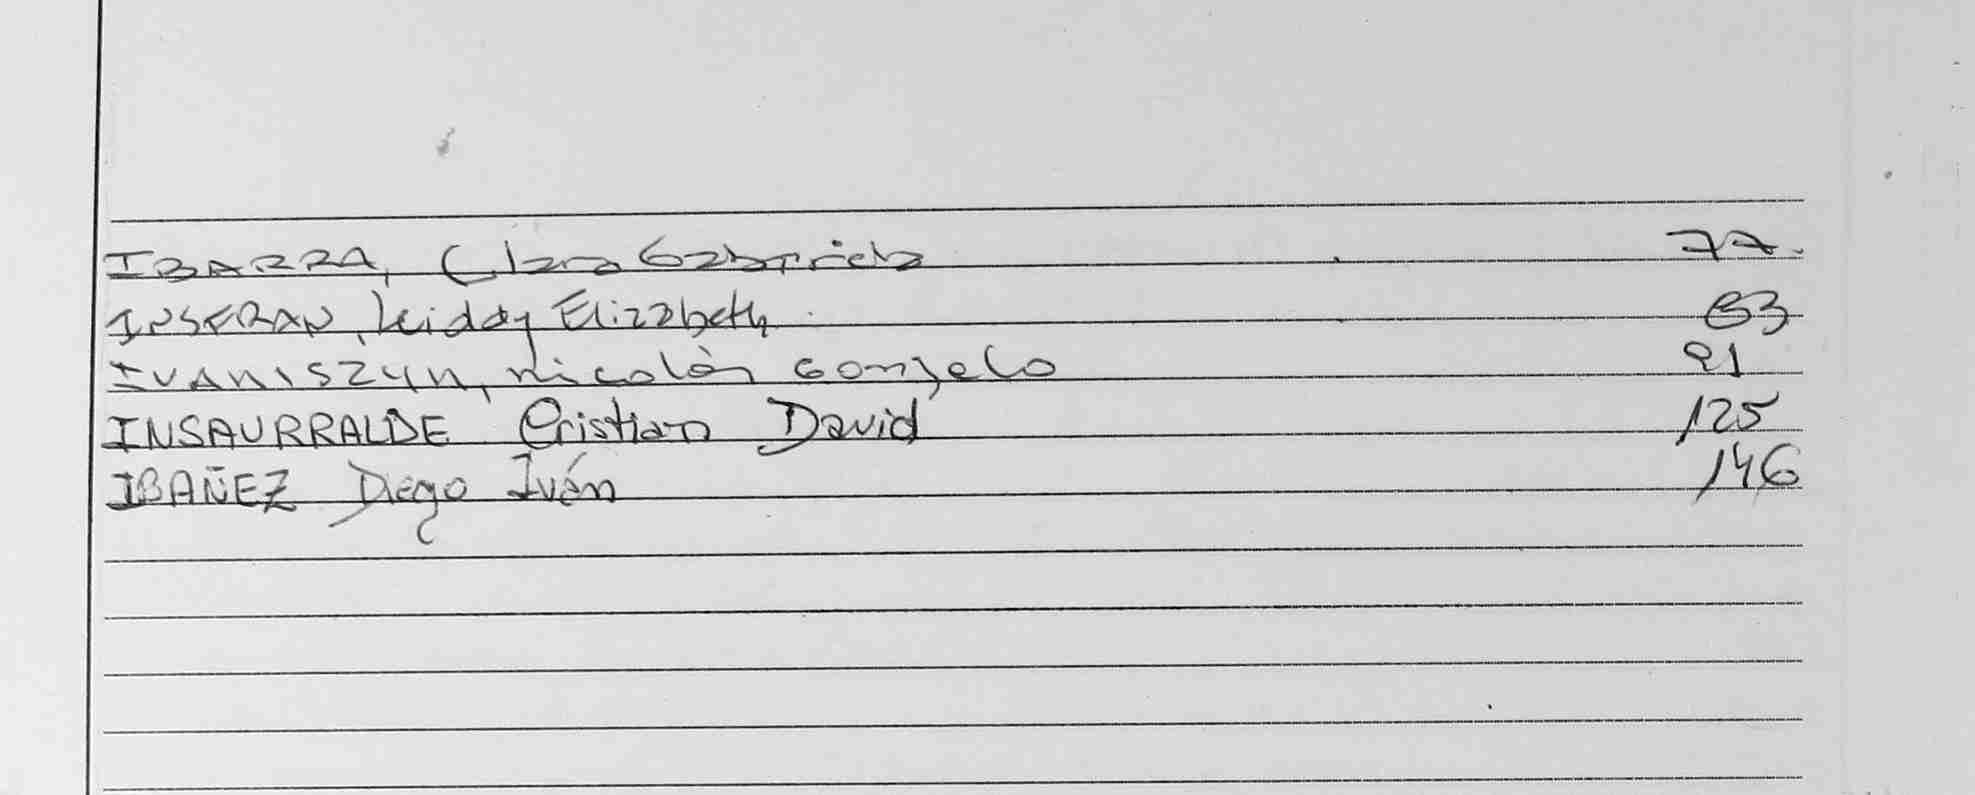 IBARRA, Clara Gabriela 77.
INSERAN, Leiddy Elizabeth 83
IVANISZYN, Nicolás Gonzalo 91
INSAURRALDE Cristian David 125
IBAÑEZ Diego Iván 146